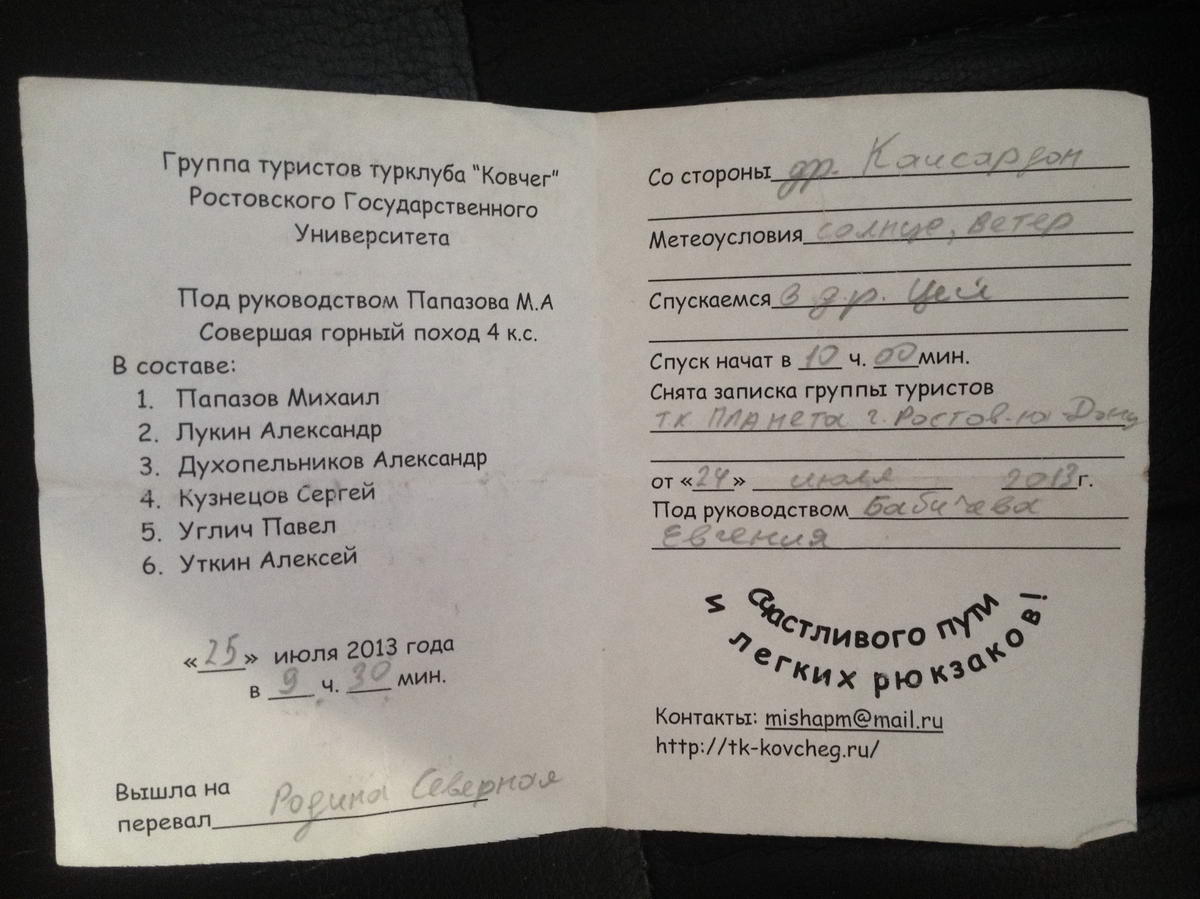 Группа туристов турклуба "Ковчег"
Ростовского Государственного
Университета
Под руководством Папазова М.А
Совершая горный поход 4 к.с.
В составе:
1. Папазов Михаил
2. Лукин Александр
3. Духопельников Александр
4. Кузнецов Сергей
5. Углич Павел
6. Уткин Алексей
«25» июля 2013 года
в 9 ч. 30 мин.
Вышла на
перевал Родина Северная
Со стороны др. Каисардон
Метеоусловия солнце, ветер
Спускаемся в д.р. Цей
Спуск начат в 10 ч. 00 мин.
Снята записка группы туристов
т.к ПЛАнета г. Ростов-на Дону
от «24» июля 2013г.
Под руководством Бабичева
Евгения
Счастливого пути
и легких рюкзаков!
Контакты: mishapm@mail.ru
http://tk-kovcheg.ru/